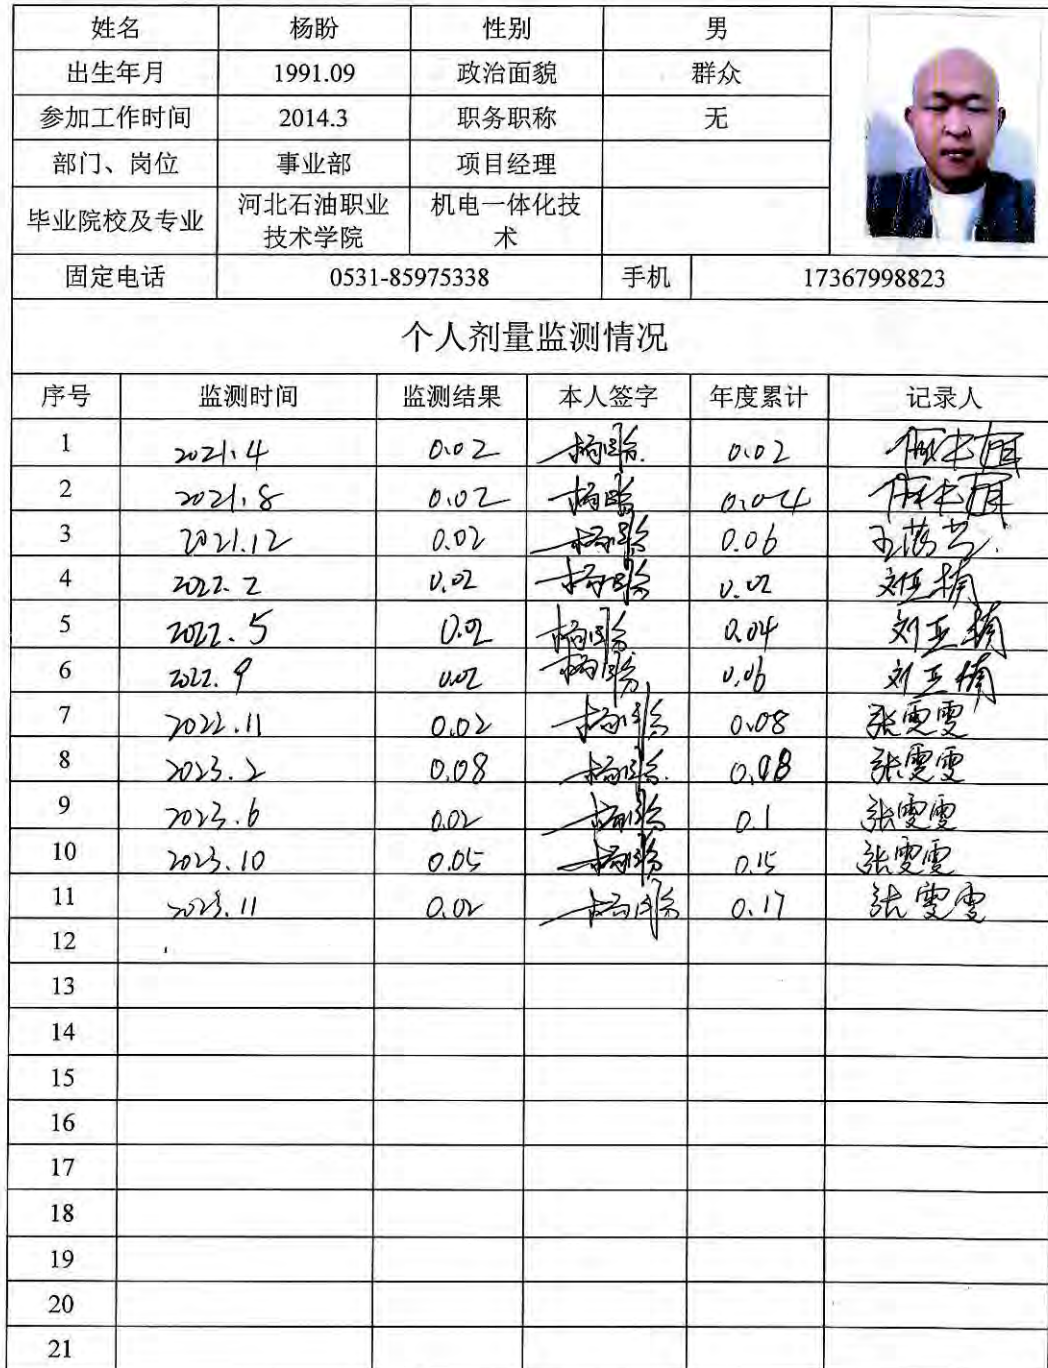 姓名 杨盼 性别 男
出生年月 1991.09 政治面貌 群众
参加工作时间 2014.3 职务职称 无
部门、岗位 事业部 项目经理
毕业院校及专业 河北石油职业技术学院 机电一体化技术
固定电话 0531-85975338 手机 17367998823
个人剂量监测情况
序号 监测时间 监测结果 本人签字 年度累计 记录人
1 2021.4 0.02 杨盼 0.02
2 2021.8 0.02 杨盼 0.04
3 2021.12 0.02 杨盼 0.06
4 2022.2 0.02 杨盼 0.02 刘亚楠
5 2022.5 0.02 杨盼 0.04 刘亚楠
6 2022.9 0.02 杨盼 0.06 刘亚楠
7 2022.11 0.02 杨盼 0.08 张雯雯
8 2023.2 0.08 杨盼 0.08 张雯雯
9 2023.6 0.02 杨盼 0.1 张雯雯
10 2023.10 0.05 杨盼 0.15 张雯雯
11 2023.11 0.02 杨盼 0.17 张雯雯
12
13
14
15
16
17
18
19
20
21